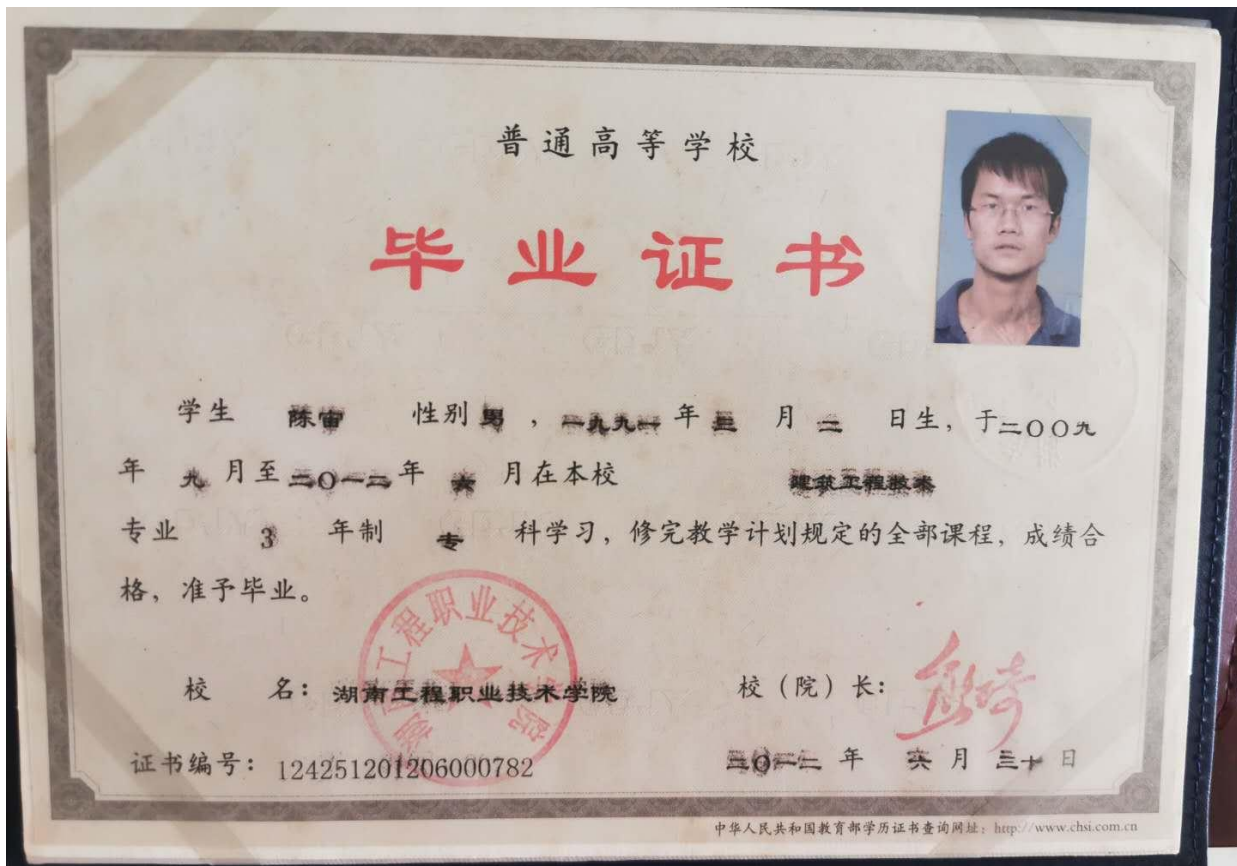 普通高等学校
毕业证书
学生 陈宙 性别 男 , 一九九一 年 三 月 二 日生, 于二〇〇九
年 九 月至 二〇一二 年 六 月在本校 建筑工程技术
专业 3 年制 专 科学习, 修完教学计划规定的全部课程, 成绩合
格, 准予毕业。
湖南工程职业技术学院
校 名: 湖南工程职业技术学院 校 (院) 长:
证书编号: 124251201206000782 二〇一二 年 六 月 三十 日
中华人民共和国教育部学历证书查询网址: http://www.chsi.com.cn